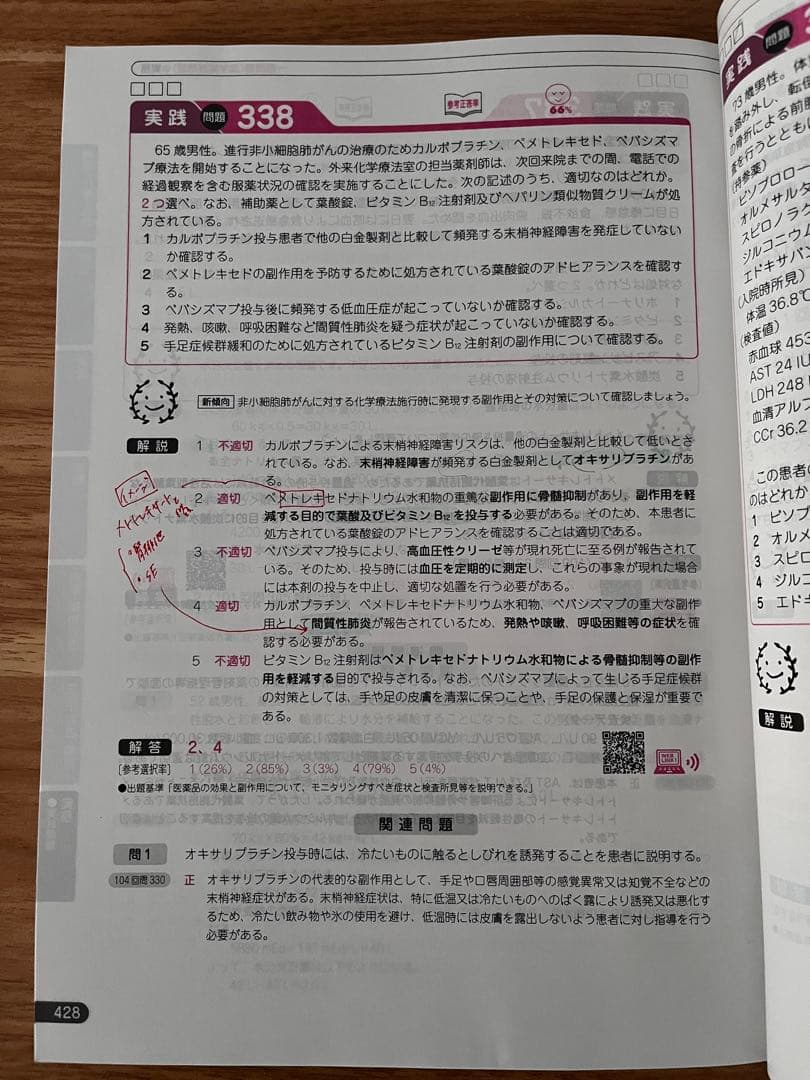 実践 問題 338
参考正答率
66%
65歳男性。進行非小細胞肺がんの治療のためカルボプラチン、ペメトレキセド、ベバシズマ
ブ療法を開始することになった。外来化学療法室の担当薬剤師は、次回来院までの間、電話での
経過観察を含む服薬状況の確認を実施することにした。次の記述のうち、適切なのはどれか。
2つ選べ。なお、補助薬として葉酸錠、ビタミンB12注射剤及びヘパリン類似物質クリームが処
方されている。
1 カルボプラチン投与患者で他の白金製剤と比較して頻発する末梢神経障害を発症していない
か確認する。
2 ペメトレキセドの副作用を予防するために処方されている葉酸錠のアドヒアランスを確認す
る。
3 ベバシズマブ投与後に頻発する低血圧症が起こっていないか確認する。
4 発熱、咳嗽、呼吸困難など間質性肺炎を疑う症状が起こっていないか確認する。
5 手足症候群緩和のために処方されているビタミンB12注射剤の副作用について確認する。
新傾向 非小細胞肺がんに対する化学療法施行時に発現する副作用とその対策について確認しましょう。
解説 1 不適切 カルボプラチンによる末梢神経障害リスクは、他の白金製剤と比較して低いとさ
れている。なお、末梢神経障害が頻発する白金製剤としてオキサリプラチンがあ
る。
2 適切 ペメトレキセドナトリウム水和物の重篤な副作用に骨髄抑制があり、副作用を軽
減する目的で葉酸及びビタミンB12を投与する必要がある。そのため、本患者に
処方されている葉酸錠のアドヒアランスを確認することは適切である。
3 不適切 ベバシズマブ投与により、高血圧性クリーゼ等が現れ死亡に至る例が報告されて
いる。そのため、投与時には血圧を定期的に測定し、これらの事象が現れた場合
には本剤の投与を中止し、適切な処置を行う必要がある。
4 適切 カルボプラチン、ペメトレキセドナトリウム水和物、ベバシズマブの重大な副作
用として間質性肺炎が報告されているため、発熱や咳嗽、呼吸困難等の症状を確
認する必要がある。
5 不適切 ビタミンB12注射剤はペメトレキセドナトリウム水和物による骨髄抑制等の副作
用を軽減する目的で投与される。なお、ベバシズマブによって生じる手足症候群
の対策としては、手や足の皮膚を清潔に保つことや、手足の保護と保湿が重要で
ある。
イメージ
メトトレキサートと
・SE
解答 2、4
[参考選択率] 1(26%) 2(85%) 3(3%) 4(79%) 5(4%)
●出題基準「医薬品の効果と副作用について、モニタリングすべき症状と検査所見等を説明できる。」
WEB LINK!
関連問題
問1 オキサリプラチン投与時には、冷たいものに触るとしびれを誘発することを患者に説明する。
104回問330 正 オキサリプラチンの代表的な副作用として、手足や口唇周囲部等の感覚異常又は知覚不全などの
末梢神経症状がある。末梢神経症状は、特に低温又は冷たいものへのばく露により誘発又は悪化す
るため、冷たい飲み物や氷の使用を避け、低温時には皮膚を露出しないよう患者に対し指導を行う
必要がある。
428
実践 問題
73歳男性。
を踏み外し、転倒
の骨折による前
査を行うとともに
(持参薬)
ビソプロロー
オルメサルタ
スピロノラク
ジルコニウム
エドキサバン
(入院時所見)
体温 36.8℃
(検査値)
赤血球 453
AST 24 IU
LDH 248 I
血清アルブ
CCr 36.2
この患者の
のはどれか
1 ビソプ
2 オルメ
3 スピロ
4 ジルコ
5 エドキ
解説